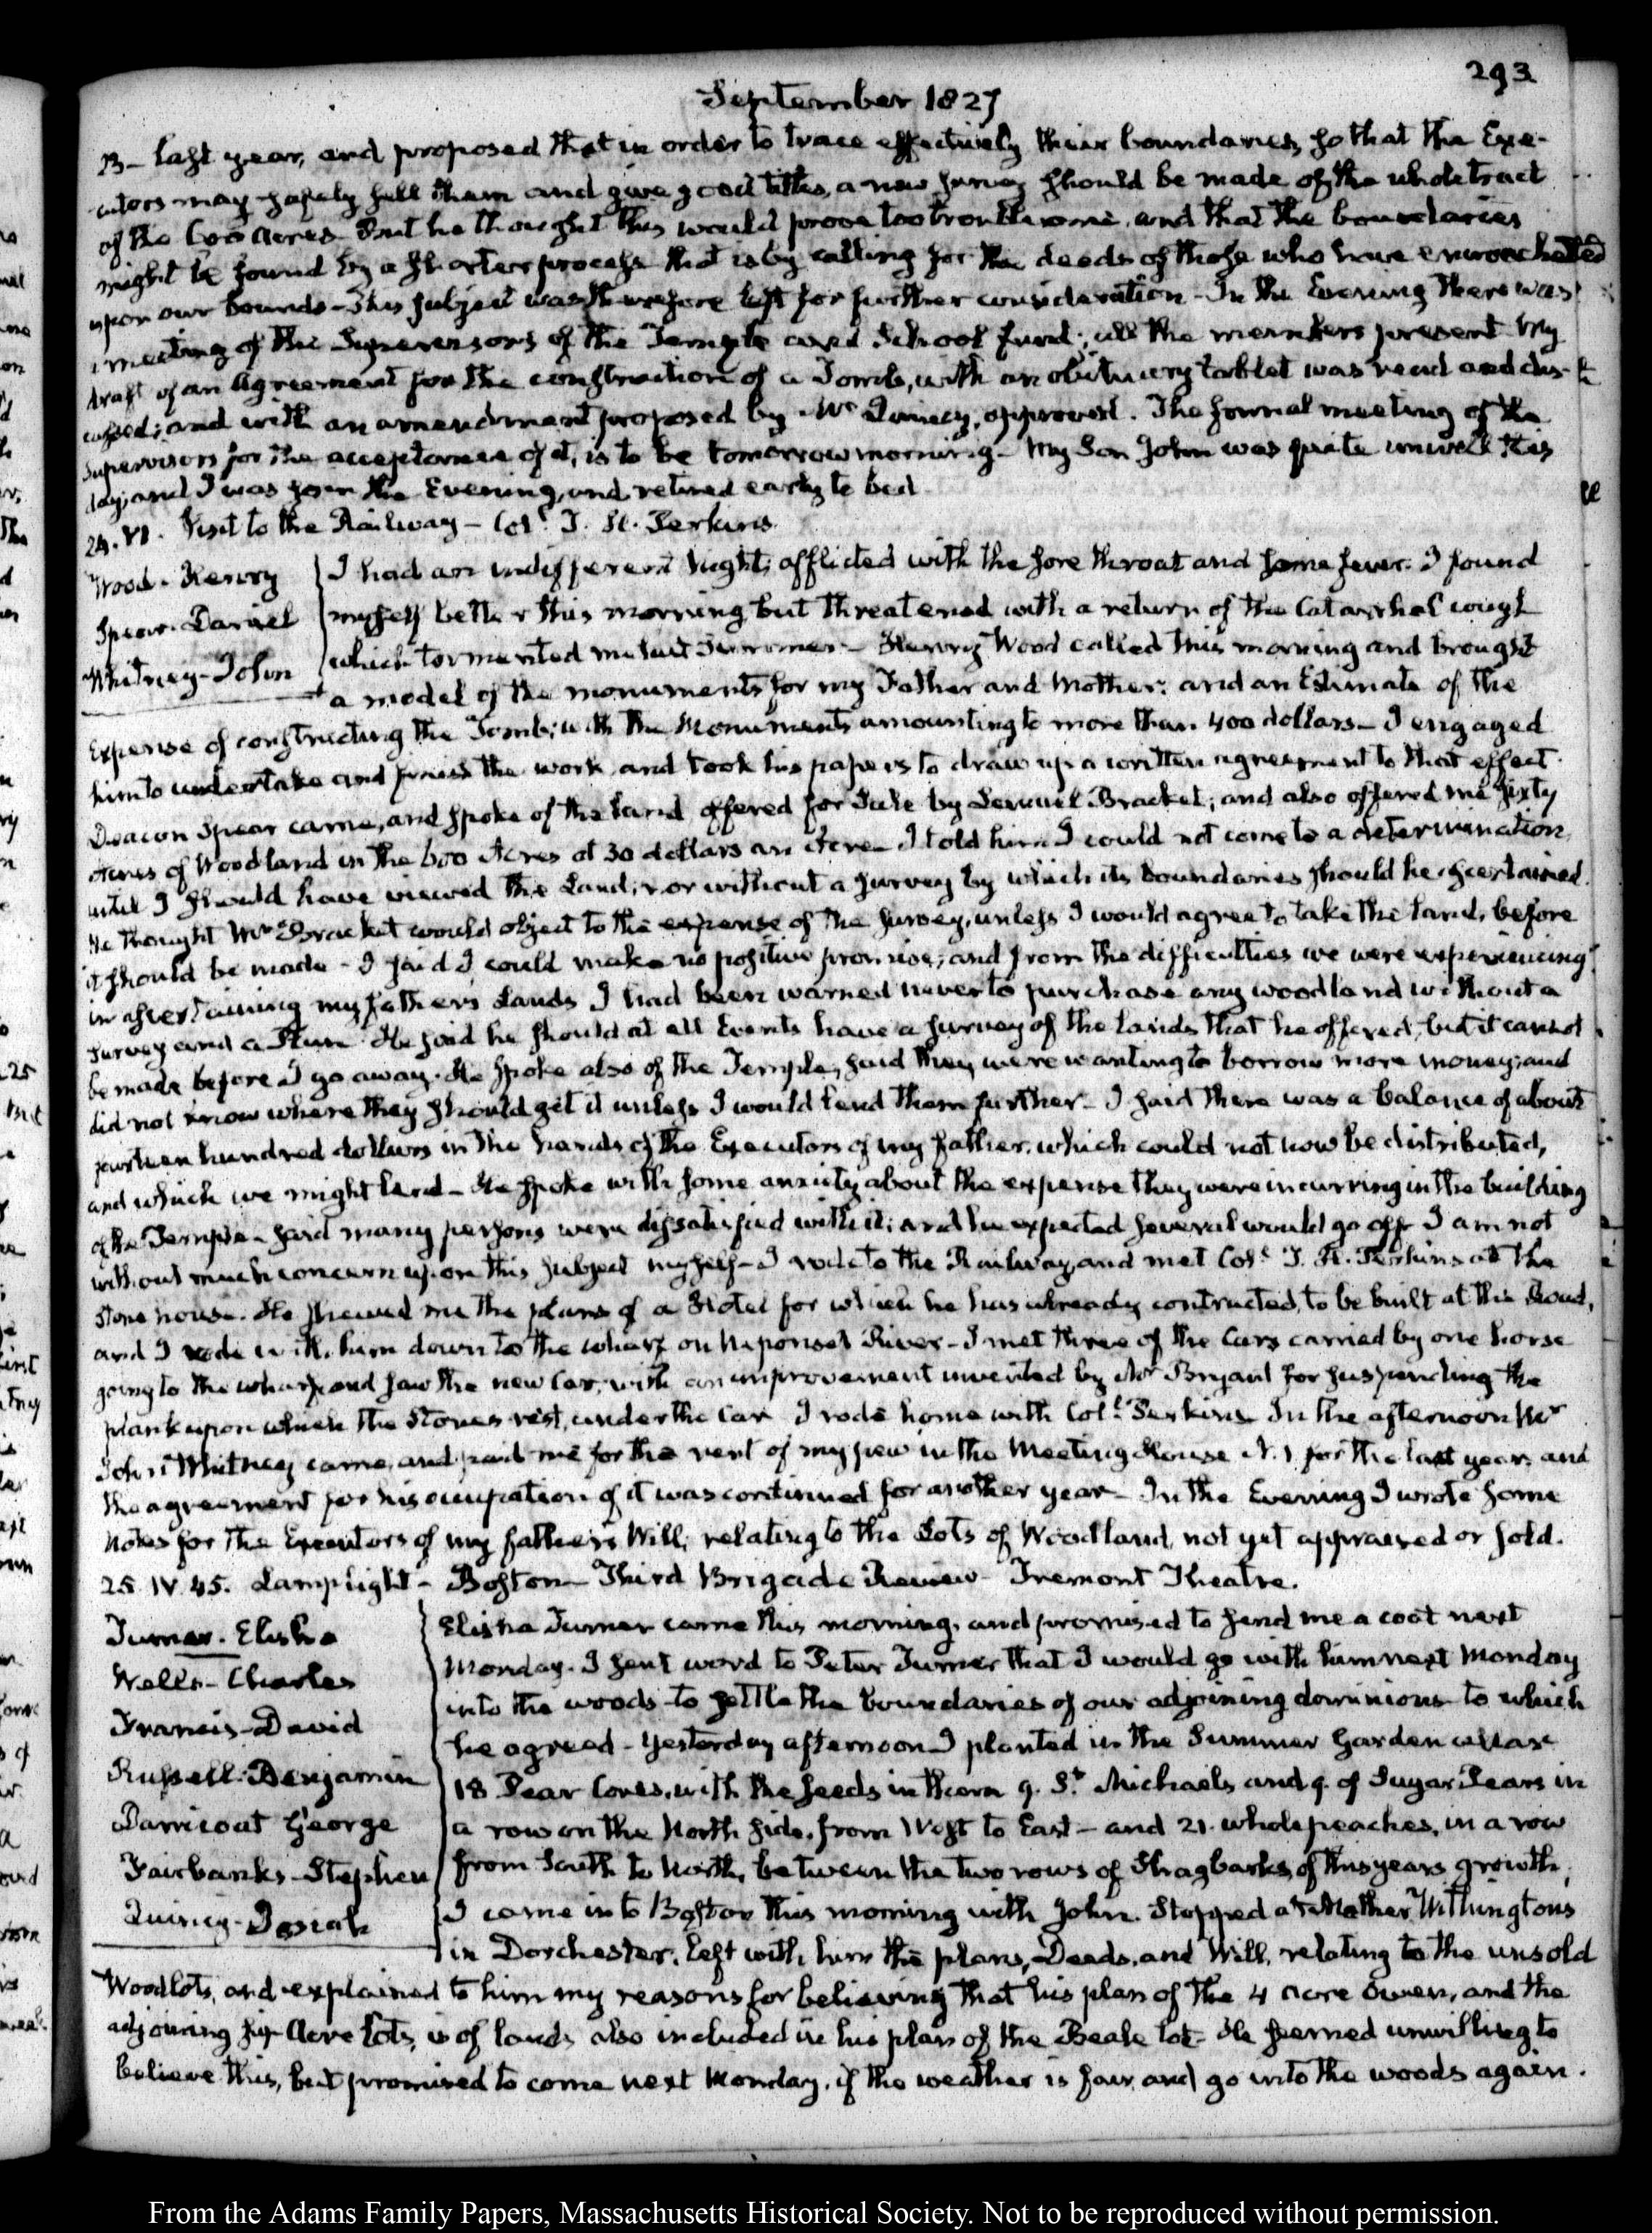 293
September 1827
23 – last year, and proposed that in order to trace effectively their boundaries, so that the Exe-
cutors may safely sell them and give good titles, a new survey should be made of the whole tract
of the 600 Acres – But he thought this would prove too troublesome, and that the boundaries
might be found by a shorter process that is by calling for the deeds of those who have encroached
upon our bounds – This subject was therefore left for further consideration – In the Evening there was
a meeting of the Supervisors of the Temple and School fund; all the members present My
draft of an Agreement for the construction of a Tomb, with an obituary tablet was read and dis-
cussed; and with an amendment proposed by Mr Quincy, approved. The formal meeting of the
Supervisors for the acceptance of it, is to be tomorrow morning – My Son John was quite unwell this
day; and I was so in the Evening, and retired early to bed
24. VI. Visit to the Railway – Coll. T. H. Perkins.
Wood – Henry
Spear – Daniel
Whitney – John
I had an indifferent Night; afflicted with the sore throat and some fever. I found
myself better this morning but threatened with a return of the Catarrhal cough
which tormented me last Summer – Henry Wood called this morning and brought
a model of the monuments for my Father and Mother: and an Estimate of the
Expense of constructing the Tomb; with the Monuments amounting to more than 400 dollars – I engaged
him to undertake and finish the work and took his papers to draw up a written agreement to that effect.
Deacon Spear came, and spoke of the land offered for Sale by Lemuel Bracket; and also offered me sixty
Acres of Woodland in the 600 Acres at 30 dollars an Acre – I told him I could not come to a determination
until I should have viewed the Land; nor without a survey by which its boundaries should be ascertained.
He thought Mr Bracket would object to the expense of the survey, unless I would agree to take the land, before
it should be made – I said I could make no positive promise; and from the difficulties we were experiencing
in ascertaining my father's Lands I had been warned never to purchase any woodland without a
survey and a Plan. He said he should at all Events have a survey of the lands that he offered, but it cannot
be made before I go away. He spoke also of the Temple, said they were wanting to borrow more money; and
did not know where they should get it unless I would lend them further – I said there was a balance of about
fourteen hundred dollars in the hands of the Executors of my father, which could not now be distributed,
and which we might lend – He spoke with some anxiety about the expense they were incurring in the building
of the Temple – said many persons were dissatisfied with it; and he expected several would go off. I am not
without much concern upon this subject myself – I rode to the Railway, and met Coll. T. H. Perkins at the
Stone house. He shewed me the plans of a Hotel for which he has already contracted, to be built at the Road,
and I rode with him down to the wharf on Neponset River – I met three of the Cars carried by one horse
going to the wharf, and saw the new Car, with an improvement invented by Mr Bryant for suspending the
plank upon which the Stones rest, under the Car. I rode home with Coll. Perkins In the afternoon Mr
John Whitney came, and paid me for the rent of my pew in the Meeting House N. 1 for the last year, and
the agreement for his occupation of it was continued for another year – In the Evening I wrote some
Notes for the Executors of my father's Will, relating to the Lots of Woodland, not yet appraised or sold.
25. IV. 45. Lamplight – Boston – Third Brigade Review – Tremont Theatre.
Turner – Elisha
Wells – Charles
Francis – David
Russell – Benjamin
Darricoat George
Fairbanks – Stephen
Quincy – Josiah
Elisha Turner came this morning, and promised to send me a coat next
Monday. I sent word to Peter Turner that I would go with him next Monday
into the woods to settle the boundaries of our adjoining dominions to which
he agreed – Yesterday afternoon I planted in the Summer Garden
18 Pear Cores, with the seeds in them 9. St. Michaels and 9. of Sugar Pears in
a row on the North side, from West to East – and 21. whole peaches, in a row
from South to North, between the two rows of Shagbarks of this years growth,
I came in to Boston this morning with John. Stopped at Mather Withingtons
in Dorchester, left with him the plans, Deeds, and Will, relating to the unsold
Woodlots, and explained to him my reasons for believing that his plan of the 4 acre Owen, and the
adjoining six Acre lots, is of lands also included in his plan of the Beale lot – He seemed unwilling to
believe this, but promised to come next Monday, if the weather is fair and go into the woods again.
From the Adams Family Papers, Massachusetts Historical Society. Not to be reproduced without permission.